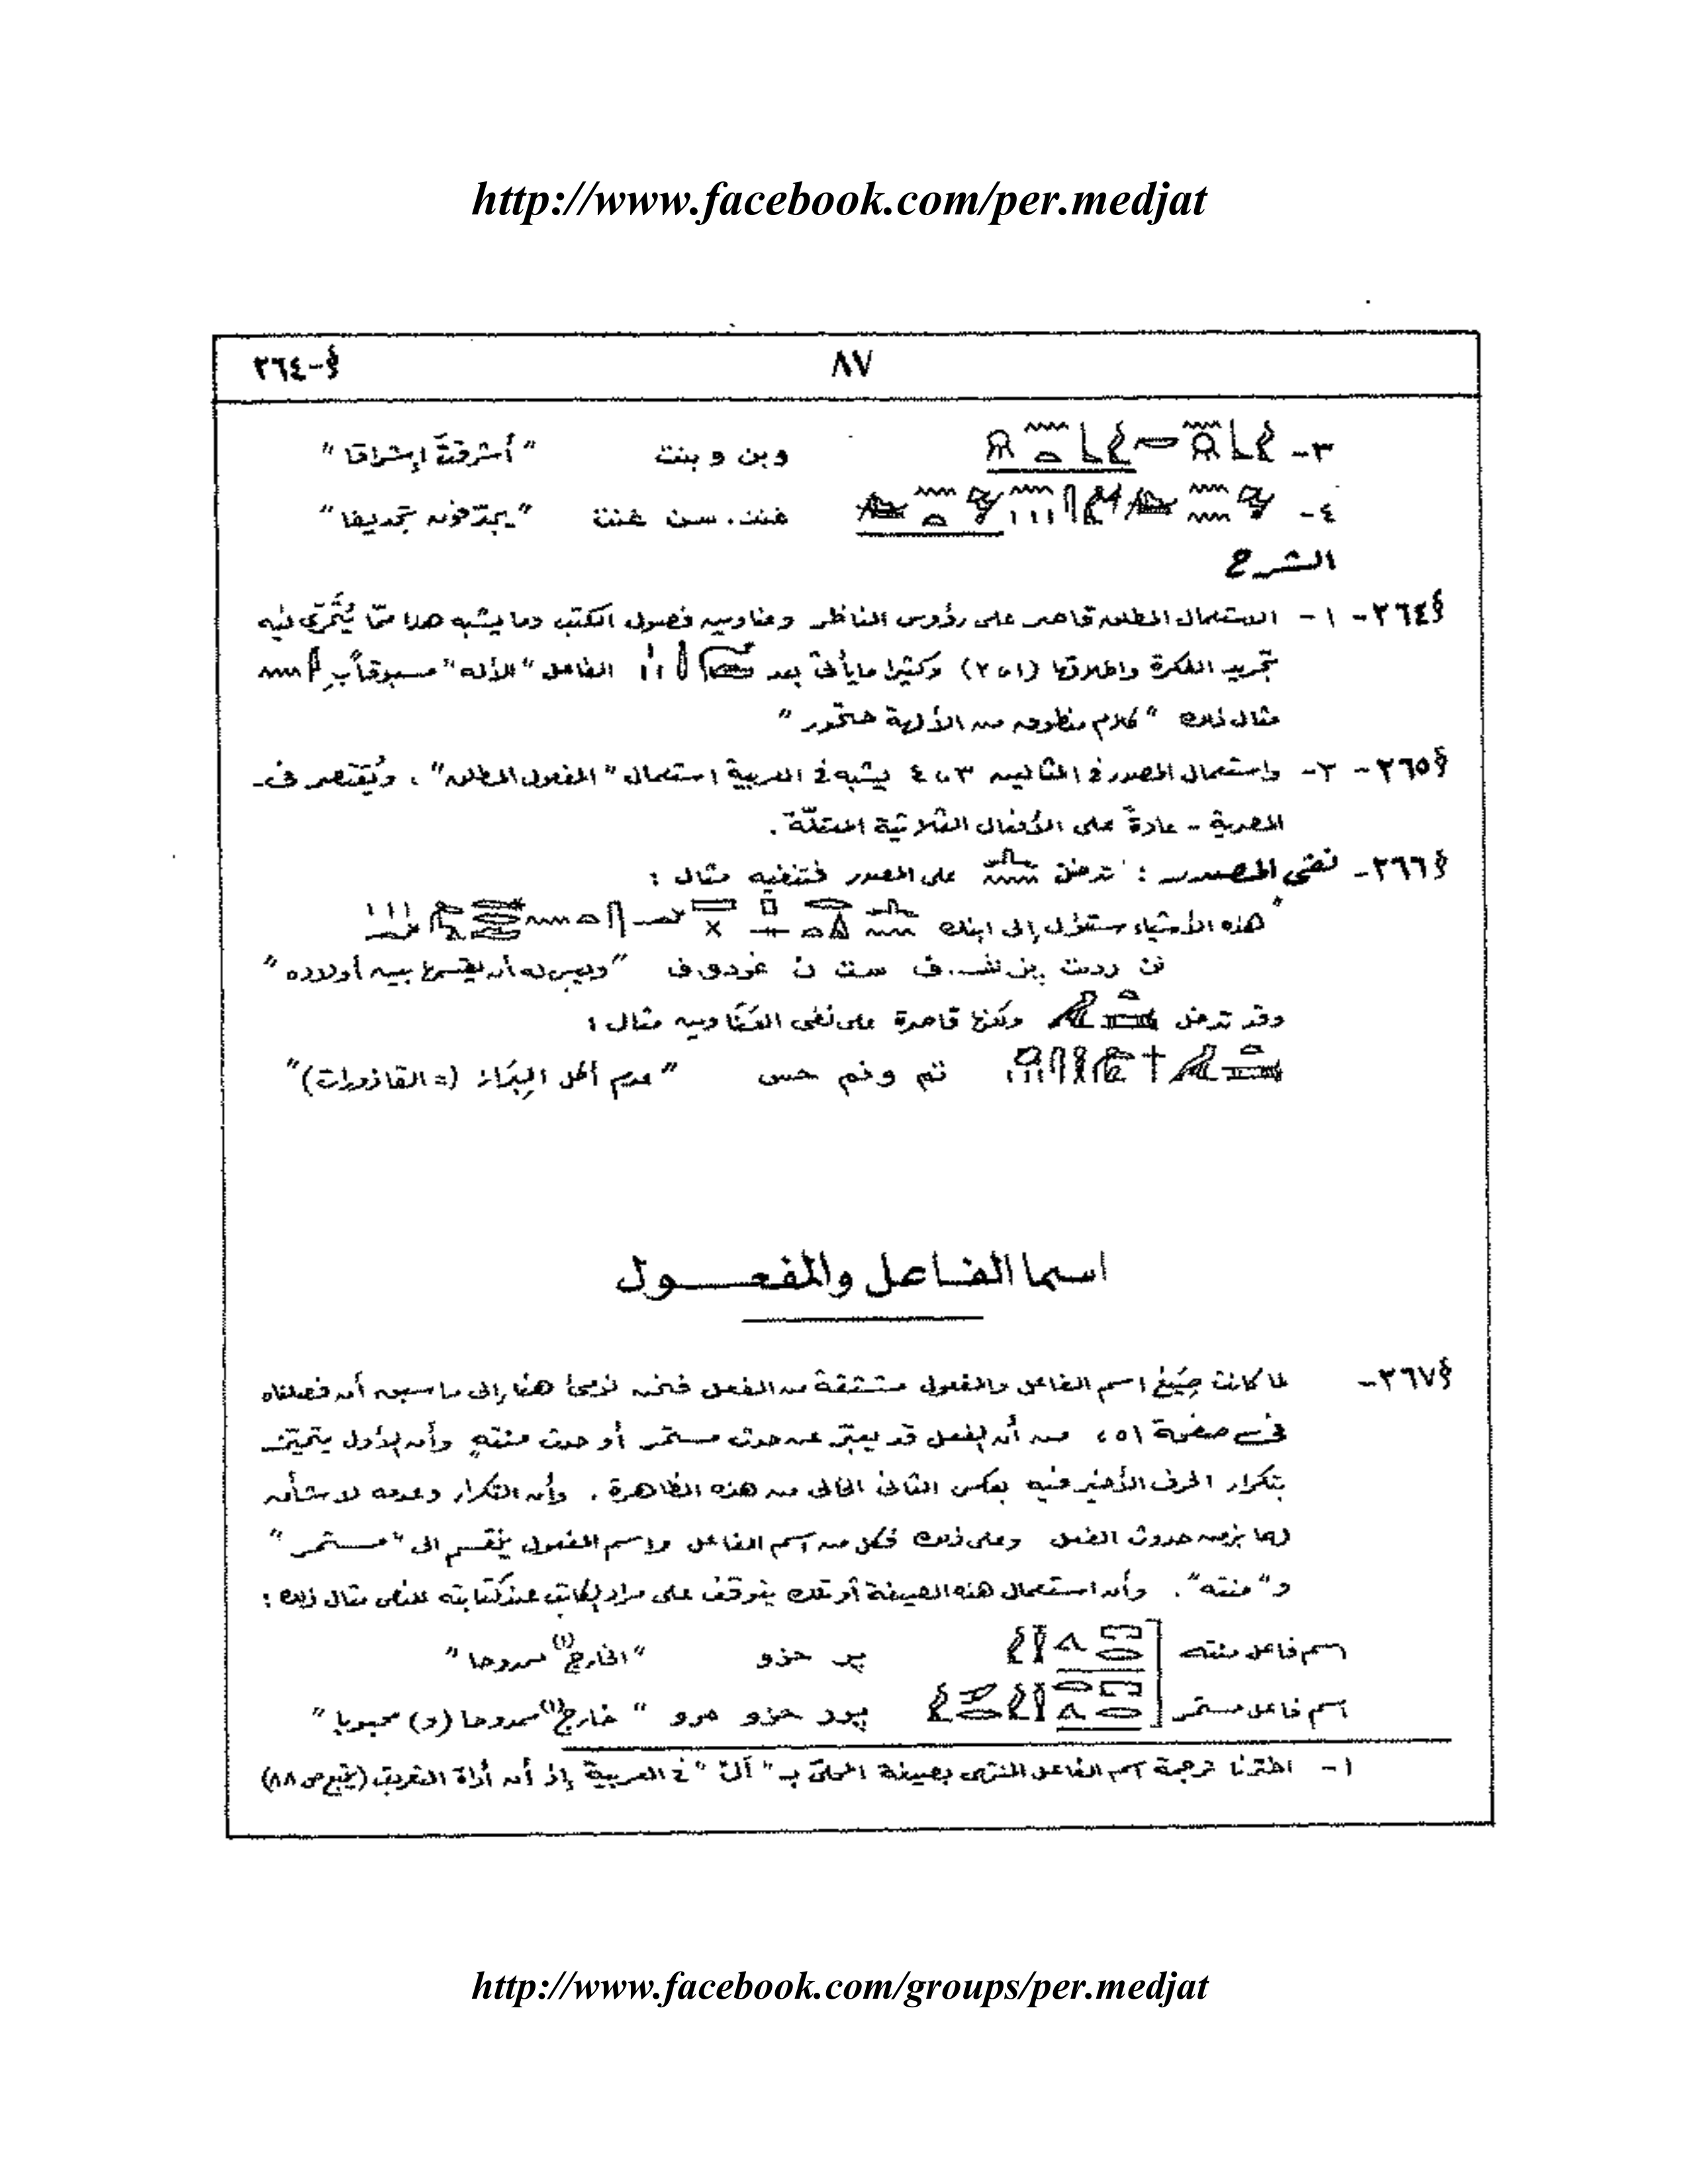 http://www.facebook.com/per.medjat
§-٢٦٤ ٨٧
٣- وبن وبنت "أشرقتَ إشراقا"
٤- خنت. سن خنت "يجدّفون تجديفا"
الشرح
§٢٦٤- ١- الاستعمال المطلق قاصر على رؤوس المناظر وعناوين فصول الكتب وما يشبه هذا ممّا يُتَحَرّى فيه
تجريد الفكرة وإطلاقها (٢،١) وكثيرا ما يأتى بعد الفاعل "الآله" مسبوقاً بـ
مثال ذلك "كلام منطوق من الألهة حتحور"
§٢٦٥- ٢- واستعمال المصدر فى المثالين ٣، ٤ يشبه فى العربية استعمال "المفعول المطلق". ويُقتصر فى-
المصرية - عادةً على الأفعال الثلاثية المعتلّة.
§٢٦٦- نفى المصدر: تدخل على المصدر فتنفيه مثال:
"هذه الأشياء ستؤل إلى ابنك
نن ردت بسش.ف ست ن خردو ف "وليس له أن يقسمها بين أولاده"
وقد تدخل ولكنها قاصرة على نفى العناوين مثال:
تم ونم حس "عدم أكل البِرَاز (= القاذورات)"
اسما الفاعل والمفعول
§٢٦٧- لما كانت صِيَغ اسم الفاعل والمفعول مشتقة من الفعل فنحن نومئ هنا إلى ما سبق أن فصلناه
فى صفحة ٥١، من أن الفعل قد يعبّر عن حدث مستمر أو حدث منتهٍ وأن الأول يتميّز
بتكرار الحرف الأخير فيه بعكس الثانى الخالى من هذه الظاهرة. وأن التكرار وعدمه لا شأن
لهما بزمن حدوث الفعل وعلى ذلك فكل من اسم الفاعل واسم المفعول ينقسم الى "مستمر"
و"منته". وأن استعمال هذه الصيغة أو تلك يتوقف على مراد الكاتب عند كتابته للنص مثال ذلك:
اسم فاعل منته پر حزو "الخارج(١) ممدوحا"
اسم فاعل مستمر پرر حزو مرو "خارج(١) ممدوحا (و) محبوبا"
١- اخترنا ترجمة اسم الفاعل المنتهى بصيغة المحلّى بـ"ألْ" فى العربية إذ أن أداة التعريف (يتبع ص ٨٨)
http://www.facebook.com/groups/per.medjat